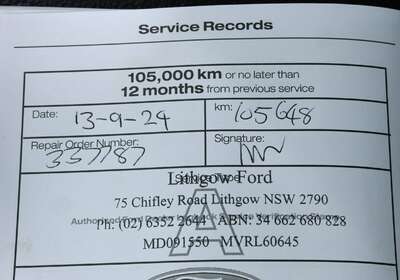 Service Records
105,000 km or no later than
12 months from previous service
Date: 13-9-24
km: 105648
Repair Order Number: 357787
Signature:
Service Type
Lithgow Ford
75 Chifley Road Lithgow NSW 2790
Ph: (02) 6352 2644 ABN: 34 662 680 828
MD091550 MVRL60645
A